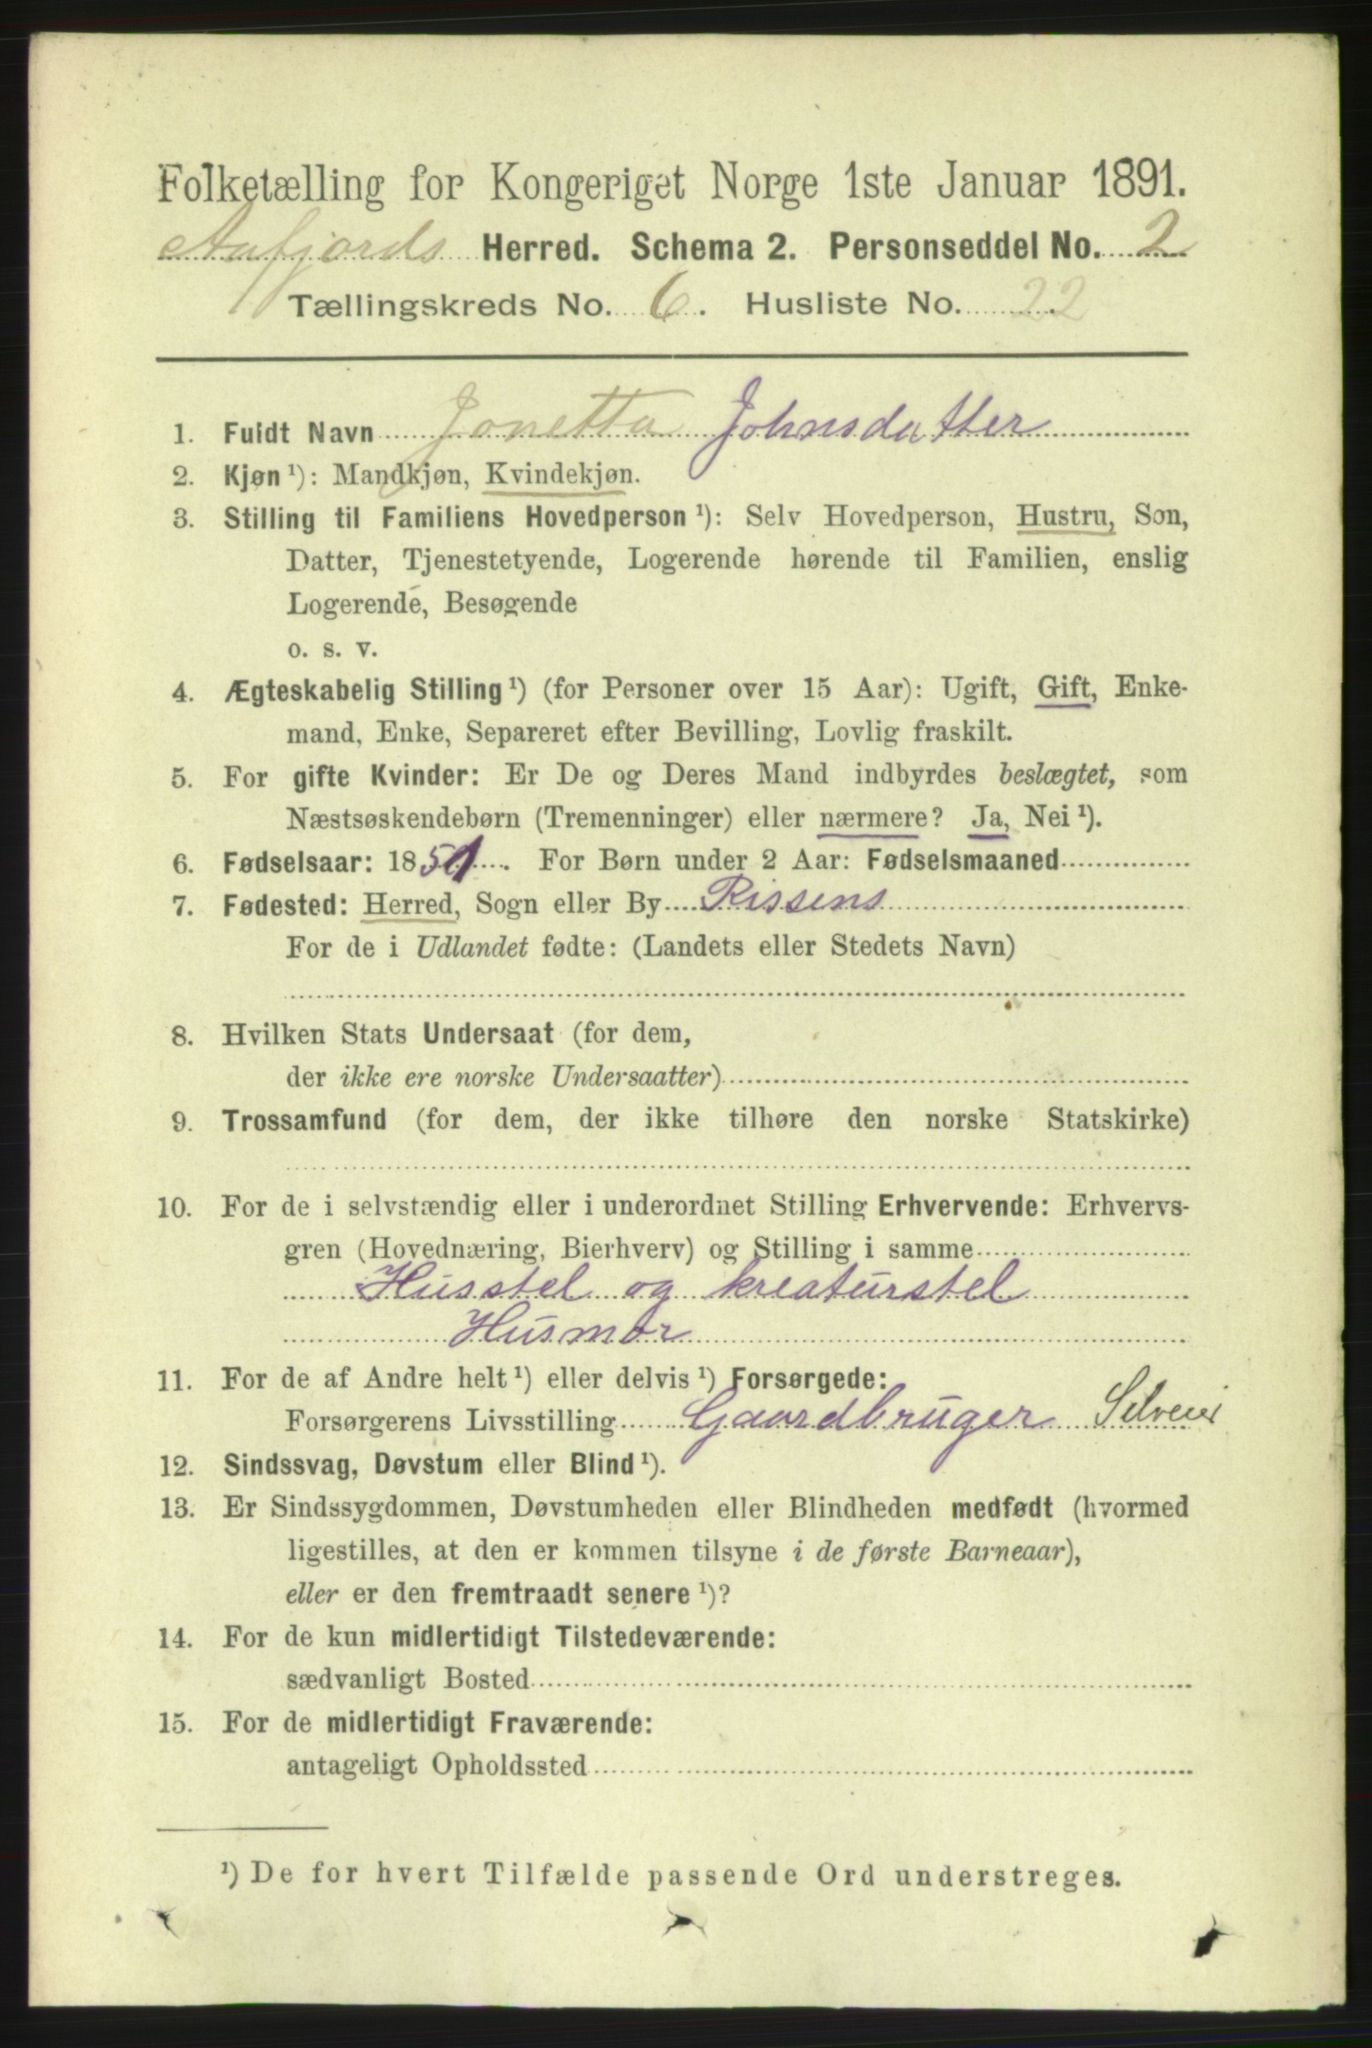 Folketælling for Kongeriget Norge 1ste Januar 1891.
Aafjords Herred. Schema 2. Personseddel No. 2
Tællingskreds No. 6. Husliste No. 22
1. Fuldt Navn Jonetta Johnsdatter
2. Kjøn ¹): Mandkjøn, Kvindekjøn.
3. Stilling til Familiens Hovedperson ¹): Selv Hovedperson, Hustru, Søn,
Datter, Tjenestetyende, Logerende hørende til Familien, enslig
Logerende, Besøgende
o. s. v.
4. Ægteskabelig Stilling ¹) (for Personer over 15 Aar): Ugift, Gift, Enke-
mand, Enke, Separeret efter Bevilling, Lovlig fraskilt.
5. For gifte Kvinder: Er De og Deres Mand indbyrdes beslægtet, som
Næstsøskendebørn (Tremenninger) eller nærmere? Ja, Nei ¹).
6. Fødselsaar: 1851. For Børn under 2 Aar: Fødselsmaaned
7. Fødested: Herred, Sogn eller By Rissens
For de i Udlandet fødte: (Landets eller Stedets Navn)
8. Hvilken Stats Undersaat (for dem,
der ikke ere norske Undersaatter)
9. Trossamfund (for dem, der ikke tilhøre den norske Statskirke)
10. For de i selvstændig eller i underordnet Stilling Erhvervende: Erhvervs-
gren (Hovednæring, Bierhverv) og Stilling i samme
Husstel og kreaturstel
Husmor
11. For de af Andre helt ¹) eller delvis ¹) Forsørgede:
Forsørgerens Livsstilling Gaardbruger Selveier
12. Sindssvag, Døvstum eller Blind ¹).
13. Er Sindssygdommen, Døvstumheden eller Blindheden medfødt (hvormed
ligestilles, at den er kommen tilsyne i de første Barneaar),
eller er den fremtraadt senere ¹)?
14. For de kun midlertidigt Tilstedeværende:
sædvanligt Bosted
15. For de midlertidigt Fraværende:
antageligt Opholdssted
¹) De for hvert Tilfælde passende Ord understreges.